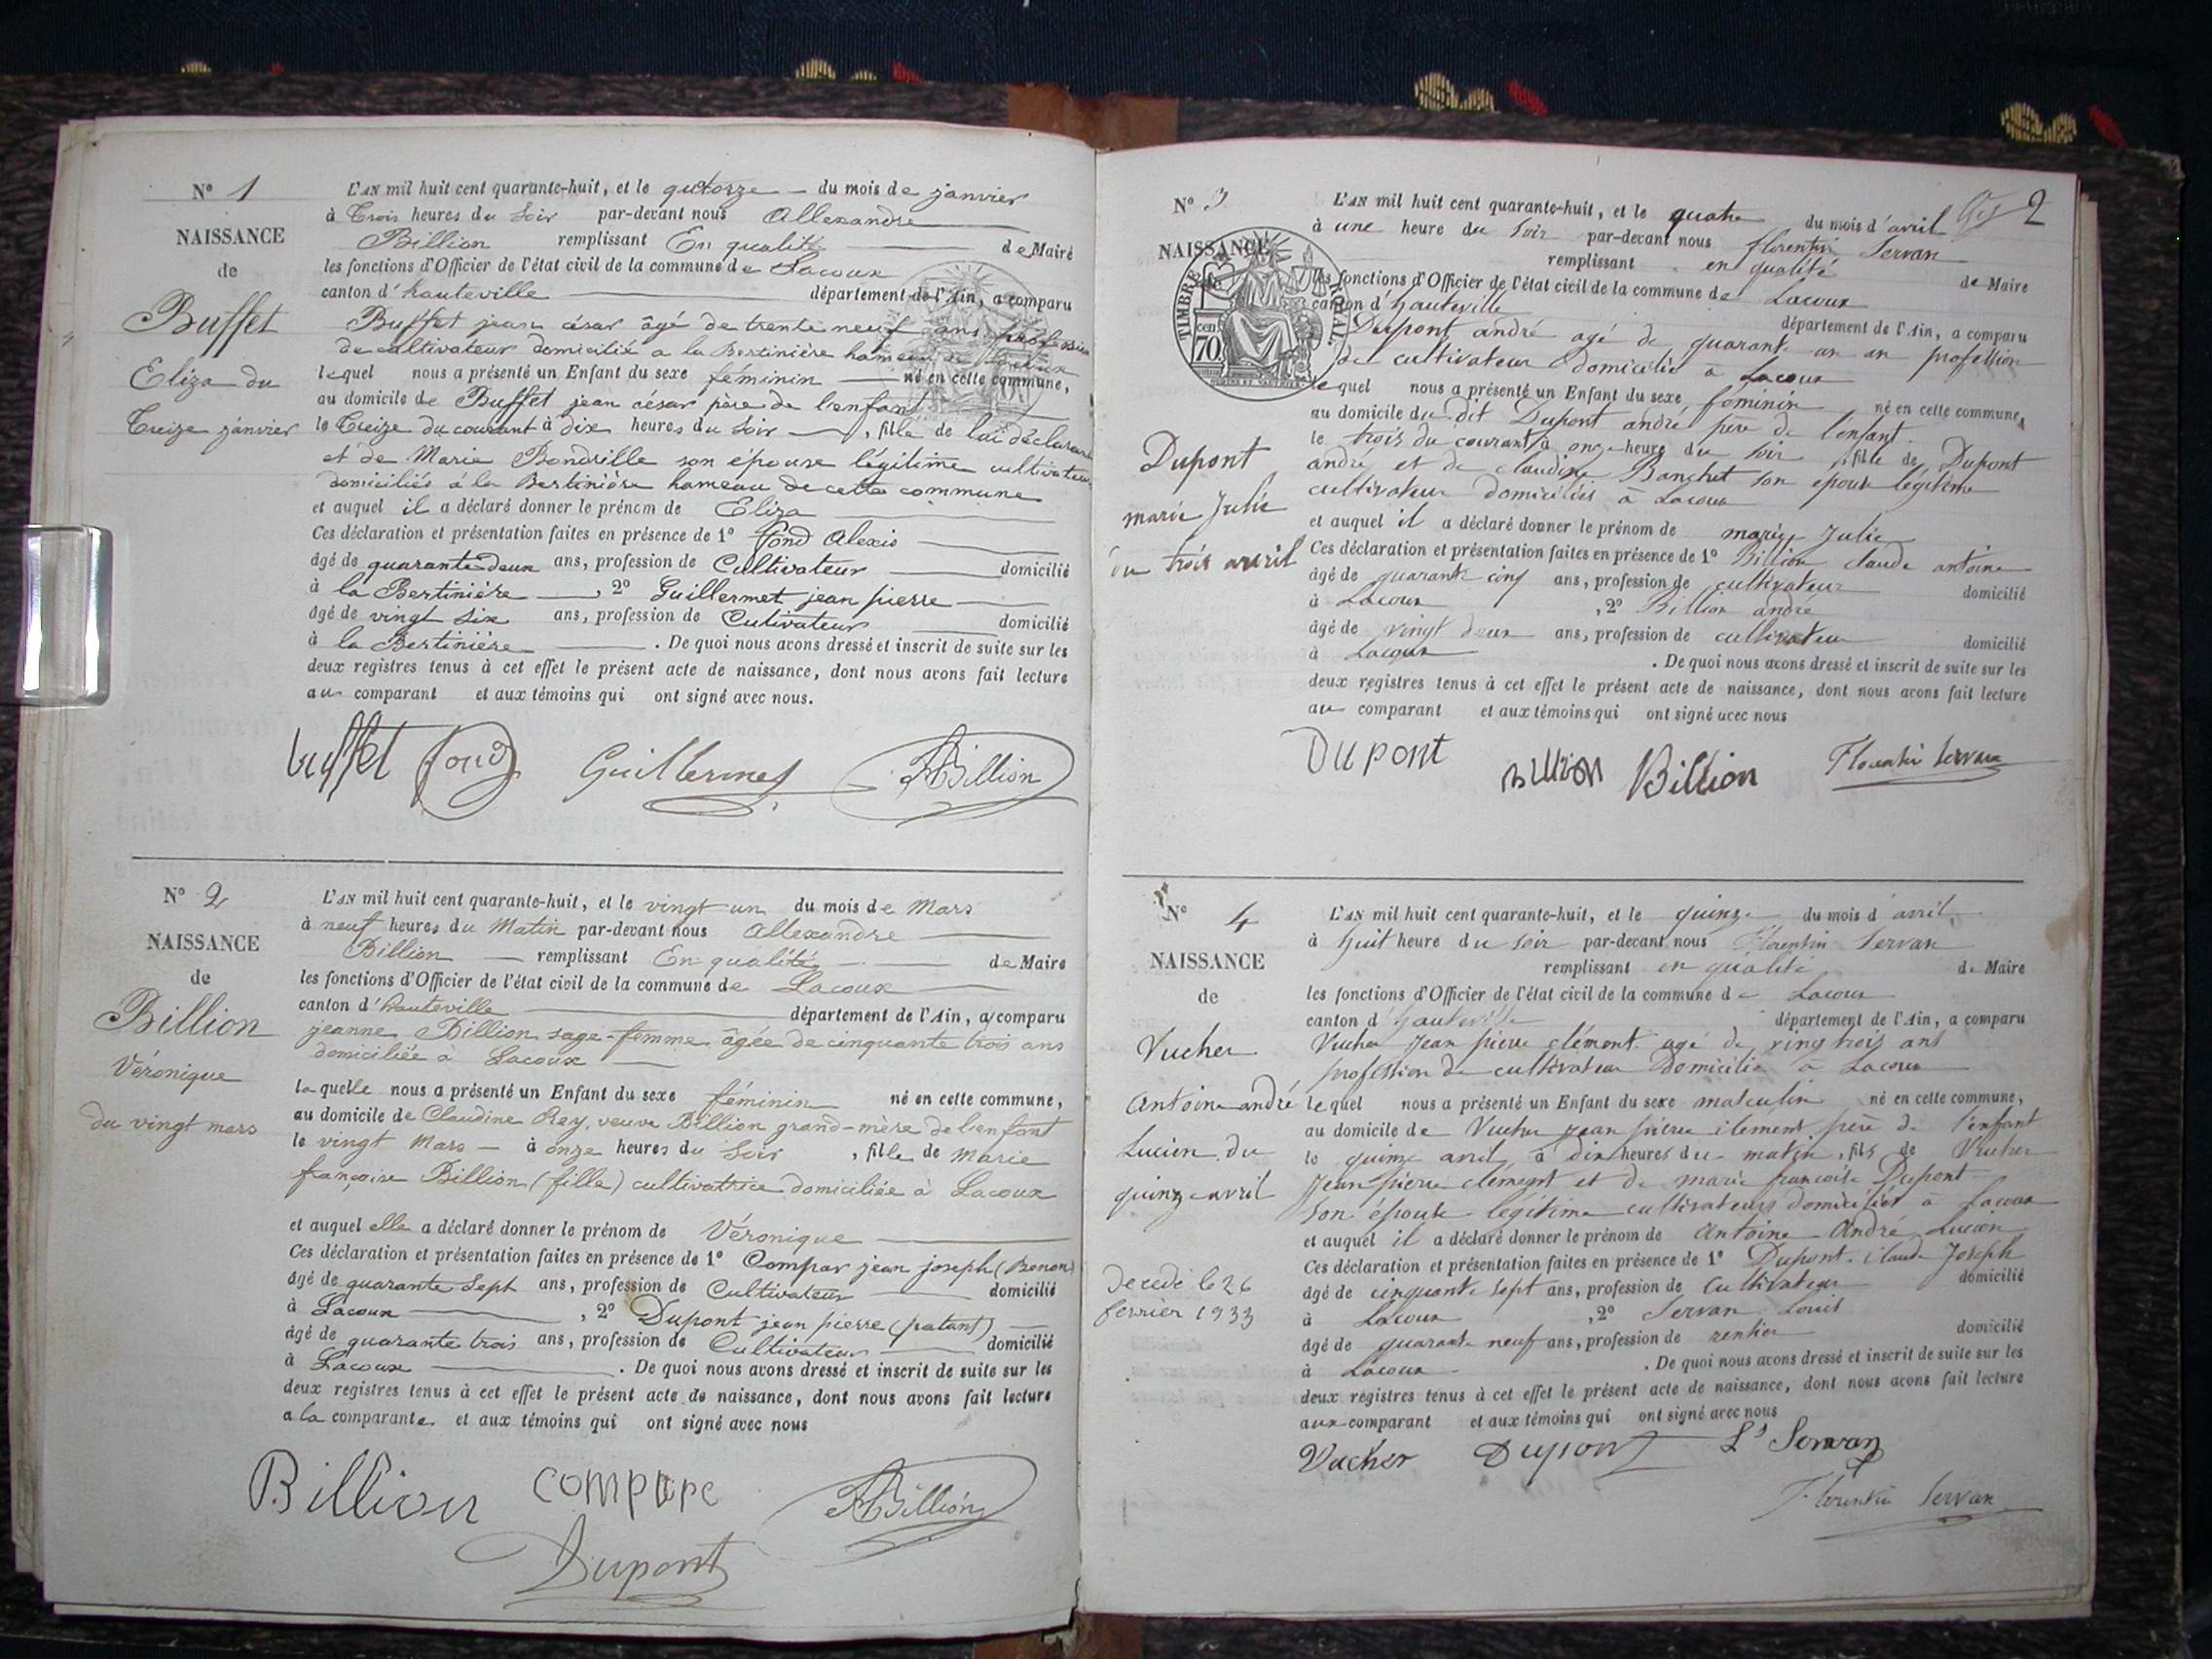 N° 1
NAISSANCE
de
Buffet
Eliza du
Treize janvier
L'AN mil huit cent quarante-huit, et le quatorze du mois de janvier
à Trois heures du Soir par-devant nous Allexandre
Billion remplissant En qualité de Maire
les fonctions d'Officier de l'état civil de la commune de Lacoux
canton d'hauteville département de l'Ain, a comparu
Buffet jean césar âgé de trente neuf ans
de cultivateur domicilié a la Bertinière hameau de Lacoux
lequel nous a présenté un Enfant du sexe féminin né en cette commune,
au domicile de Buffet jean césar père de l'enfant
le Treize du courant à dix heures du Soir, fille de lui déclarant
et de Marie Bondrille son épouse légitime cultivateurs
domiciliés à la Bertinière hameau de cette commune
et auquel il a déclaré donner le prénom de Eliza
Ces déclaration et présentation faites en présence de 1° fond Alexis
âgé de quarante deux ans, profession de Cultivateur domicilié
à la Bertinière, 2° Guillermet jean pierre
âgé de vingt six ans, profession de Cutivateur domicilié
à la Bertinière. De quoi nous avons dressé et inscrit de suite sur les
deux registres tenus à cet effet le présent acte de naissance, dont nous avons fait lecture
au comparant et aux témoins qui ont signé avec nous.
buffet fond Guillermet ABillion
N° 2
NAISSANCE
de
Billion
Véronique
du vingt mars
L'AN mil huit cent quarante-huit, et le vingt un du mois de Mars
à neuf heures du Matin par-devant nous Allexandre
Billion remplissant En qualité de Maire
les fonctions d'Officier de l'état civil de la commune de Lacoux
canton d'hauteville département de l'Ain, a comparu
jeanne Billion sage-femme âgée de cinquante trois ans
domiciliée à Lacoux
laquelle nous a présenté un Enfant du sexe féminin né en cette commune,
au domicile de Claudine Rey, veuve Billion grand-mère de l'enfant
le vingt Mars à onze heures du Soir, fille de Marie
françoise Billion (fille) cultivatrice domiciliée à Lacoux
et auquel elle a déclaré donner le prénom de Véronique
Ces déclaration et présentation faites en présence de 1° Compar jean joseph (Benon)
âgé de quarante Sept ans, profession de Cultivateur domicilié
à Lacoux, 2° Dupont jean pierre (patant)
âgé de quarante trois ans, profession de Cultivateur domicilié
à Lacoux. De quoi nous avons dressé et inscrit de suite sur les
deux registres tenus à cet effet le présent acte de naissance, dont nous avons fait lecture
a la comparante et aux témoins qui ont signé avec nous
Billion compare ABillion
Dupont
2
N° 3
NAISSANCE
TIMBRE ROYAL
70 cen
Dupont
marie Julie
du trois avril
L'AN mil huit cent quarante-huit, et le quatre du mois d'avril
à une heure du Soir par-devant nous florentin Servan
remplissant en qualité de Maire
les fonctions d'Officier de l'état civil de la commune de Lacoux
canton d'hauteville département de l'Ain, a comparu
Dupont andré agé de quarante un an profession
de cultivateur domicilié à Lacoux
lequel nous a présenté un Enfant du sexe feminin né en cette commune,
au domicile du dit Dupont andré père de l'enfant
le trois du courant à onze heure du Soir, fille de Dupont
andré et de claudine Banchet son epouse légitime
cultivateur domiciliés à Lacoux
et auquel il a déclaré donner le prénom de marie Julie
Ces déclaration et présentation faites en présence de 1° Billion claude antoine
âgé de quarante cinq ans, profession de cultivateur domicilié
à Lacoux, 2° Billion andré
âgé de vingt deux ans, profession de cultivateur domicilié
à Lacoux. De quoi nous avons dressé et inscrit de suite sur les
deux registres tenus à cet effet le présent acte de naissance, dont nous avons fait lecture
au comparant et aux témoins qui ont signé avec nous
Dupont Billion Billion Florentin Servan
N° 4
NAISSANCE
de
Vucher
Antoine andré
Lucien du
quinze avril
décédé le 26
février 1933
L'AN mil huit cent quarante-huit, et le quinze du mois d'avril
à huit heure du Soir par-devant nous Florentin Servan
remplissant en qualité de Maire
les fonctions d'Officier de l'état civil de la commune de Lacoux
canton d'hauteville département de l'Ain, a comparu
Vucher Jean pierre clément agé de vingt trois ans
profession de cultivateur domicilié à Lacoux
lequel nous a présenté un Enfant du sexe masculin né en cette commune,
au domicile de Vucher jean pierre clément père de l'enfant
le quinze avril à dix heures du matin, fils de Vucher
Jean pierre clément et de marie françoise Dupont
Son épouse légitime cultivateurs domiciliés à Lacoux
et auquel il a déclaré donner le prénom de Antoine André Lucien
Ces déclaration et présentation faites en présence de 1° Dupont claude Joseph
âgé de cinquante sept ans, profession de Cultivateur domicilié
à Lacoux, 2° Servan Louis
âgé de quarante neuf ans, profession de rentier domicilié
à Lacoux. De quoi nous avons dressé et inscrit de suite sur les
deux registres tenus à cet effet le présent acte de naissance, dont nous avons fait lecture
aux comparant et aux témoins qui ont signé avec nous
Vucher Dupont Ls Servan
Florentin Servan